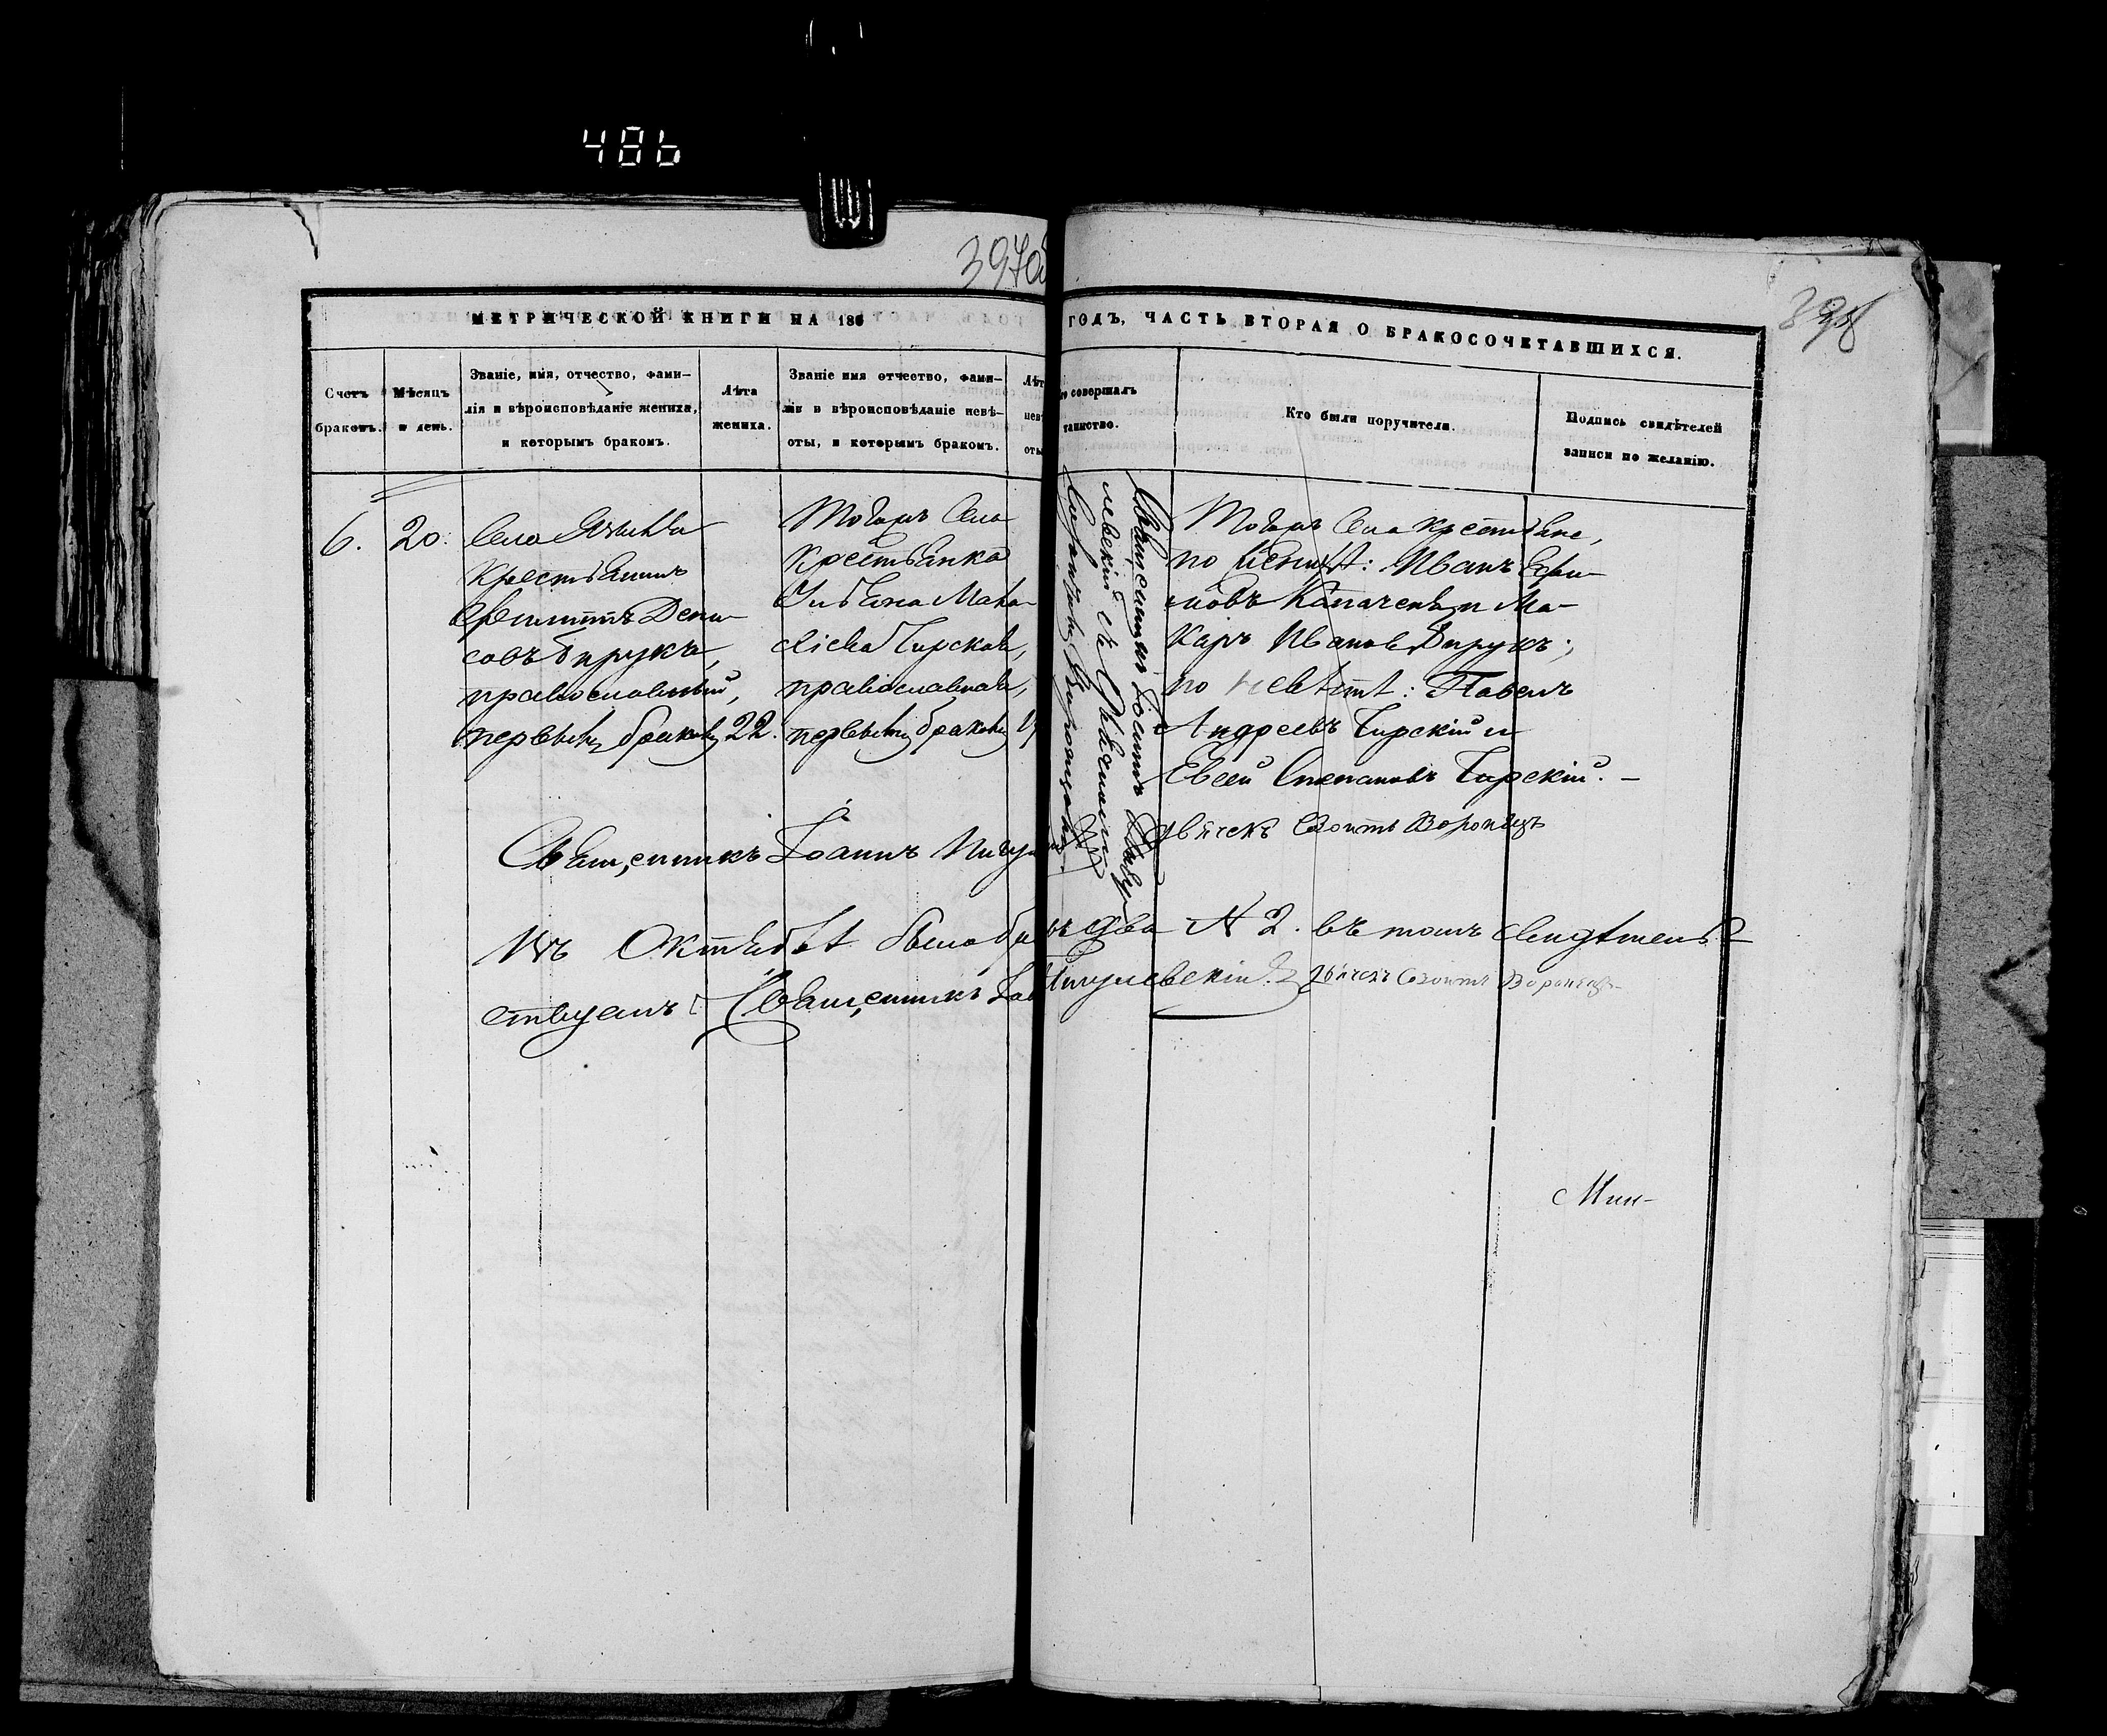 486
397об
398
МЕТРИЧЕСКОЙ КНИГИ НА 186
ГОДЪ, ЧАСТЬ ВТОРАЯ О БРАКОСОЧЕТАВШИХСЯ.
Счетъ браковъ.
Мѣсяцъ и день.
Званіе, имя, отчество, фами-
лія и вѣроисповѣданіе жениха,
и которымъ бракомъ.
Лѣта жениха.
Званіе имя отчество, фами-
лія и вѣроисповѣданіе невѣ-
сты, и которымъ бракомъ.
Лѣт
нев
совершалъ
таинство.
Кто были поручители.
Подпись свидѣтелей
записи по желанію.
6.
20.
Села
Крестьянинъ
Филиппъ Дени-
совъ Бирукъ,
православный,
первымъ бракомъ
22.
Тогожъ Села
Крестьянка
Ульяна Мака-
Чирская,
православная,
первымъ бракомъ
Священникъ Іоаннъ
съ
Тогожъ Села крестьяне,
по женихѣ: Иванъ Ефи-
мовъ и Ма-
каръ Ивановъ Бирукъ;
по невѣстѣ: Павелъ
Андреевъ Чирскій и
Евсей Степановъ Чирскій. -
Дьячекъ Созонтъ Воронецъ
Священникъ Іоаннъ
Въ Октябрѣ было бра
въ два № 2. въ томъ свидѣтель-
ствуемъ: Священникъ Іоа
Дьячекъ Созонтъ Воронецъ